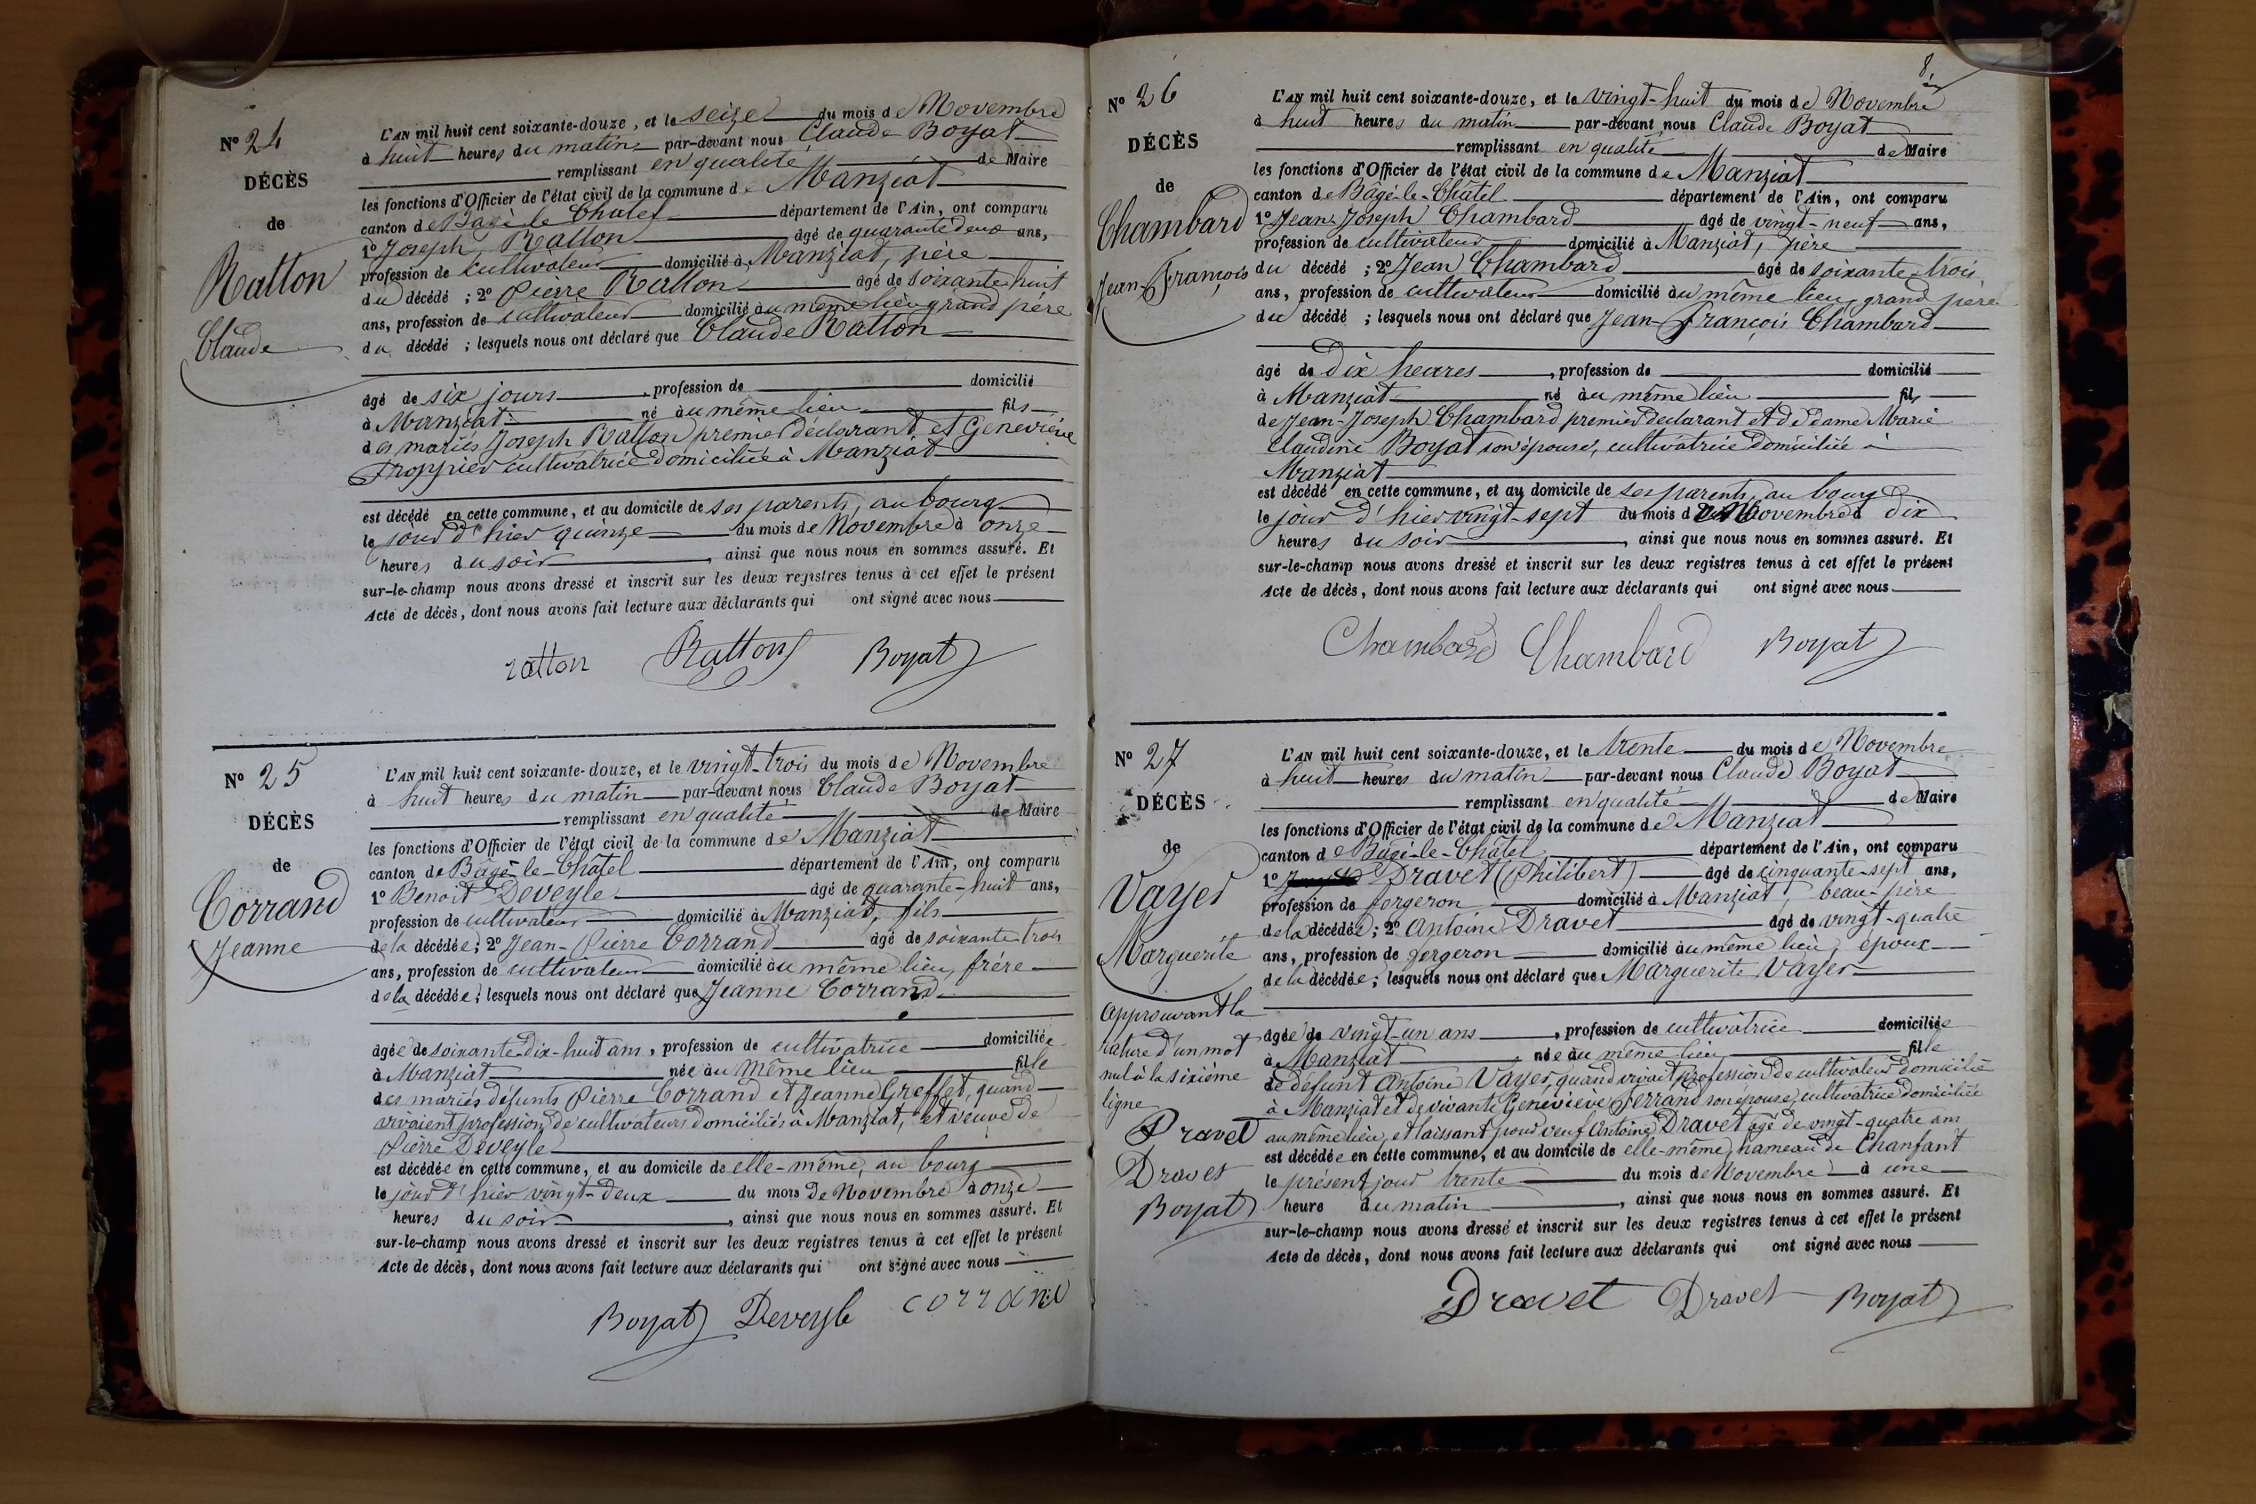 Nº 24
DÉCÈS
de
Ratton
Claude
L'AN mil huit cent soixante-douze, et le seize du mois de Novembre
à huit heures du matin par-devant nous Claude Boyat
remplissant en qualité de Maire
les fonctions d'Officier de l'état civil de la commune de Manziat
canton de Bagé-le-Chatel département de l'Ain, ont comparu
1º Joseph Ratton âgé de quarante deux ans,
profession de cultivateur domicilié à Manziat, père
du décédé ; 2º Pierre Ratton âgé de soixante-huit
ans, profession de cultivateur domicilié au même lieu grand père
du décédé ; lesquels nous ont déclaré que Claude Ratton
âgé de six jours, profession de domicilié
à Manziat né au même lieu fils
des mariés Joseph Ratton premier déclarant et Geneviève
cultivatrice domiciliée à Manziat
est décédé en cette commune, et au domicile de ses parents, au bourg
le jour d'hier quinze du mois de Novembre à onze
heures du soir, ainsi que nous nous en sommes assuré. Et
sur-le-champ nous avons dressé et inscrit sur les deux registres tenus à cet effet le présent
Acte de décès, dont nous avons fait lecture aux déclarants qui ont signé avec nous
ratton Ratton Boyat
Nº 25
DÉCÈS
de
Corrand
Jeanne
L'AN mil huit cent soixante-douze, et le vingt-trois du mois de Novembre
à huit heures du matin par-devant nous Claude Boyat
remplissant en qualité de Maire
les fonctions d'Officier de l'état civil de la commune de Manziat
canton de Bâgé-le-Châtel département de l'Ain, ont comparu
1º Benoit Deveyle âgé de quarante-huit ans,
profession de cultivateur domicilié à Manziat, fils
de la décédée ; 2º Jean-Pierre Corrand âgé de soixante trois
ans, profession de cultivateur domicilié au même lieu, frère
de la décédée ; lesquels nous ont déclaré que Jeanne Corrand
âgée de soixante-dix-huit ans, profession de cultivatrice domiciliée
à Manziat née au même lieu fille
des mariés défunts Pierre Corrand et Jeanne Greffet, quand
vivaient profession de cultivateurs domiciliés à Manziat, et veuve de
Pierre Deveyle
est décédée en cette commune, et au domicile de elle-même, au bourg
le jour d'hier vingt-deux du mois de Novembre à onze
heures du soir, ainsi que nous nous en sommes assuré. Et
sur-le-champ nous avons dressé et inscrit sur les deux registres tenus à cet effet le présent
Acte de décès, dont nous avons fait lecture aux déclarants qui ont signé avec nous
Boyat Deveyle corrand
8.
Nº 26
DÉCÈS
de
Chambard
Jean-François
L'AN mil huit cent soixante-douze, et le vingt-huit du mois de Novembre
à huit heures du matin par-devant nous Claude Boyat
remplissant en qualité de Maire
les fonctions d'Officier de l'état civil de la commune de Manziat
canton de Bâgé-le-Châtel département de l'Ain, ont comparu
1º Jean-Joseph Chambard âgé de vingt-neuf ans,
profession de cultivateur domicilié à Manziat, père
du décédé ; 2º Jean Chambard âgé de soixante-trois
ans, profession de cultivateur domicilié au même lieu, grand père
du décédé ; lesquels nous ont déclaré que Jean-François Chambard
âgé de dix heures, profession de domicilié
à Manziat né au même lieu fils
de Jean-Joseph Chambard premier déclarant et de dame Marie
Claudine Boyat son épouse, cultivatrice domiciliée à
Manziat
est décédé en cette commune, et au domicile de ses parents, au bourg
le jour d'hier vingt-sept du mois de Novembre à dix
heures du soir, ainsi que nous nous en sommes assuré. Et
sur-le-champ nous avons dressé et inscrit sur les deux registres tenus à cet effet le présent
Acte de décès, dont nous avons fait lecture aux déclarants qui ont signé avec nous
Chambard Chambard Boyat
Nº 27
DÉCÈS
de
Vayer
Marguerite
Approuvant la
rature d'un mot
nul à la sixième
ligne
Dravet
Dravet
Boyat
L'AN mil huit cent soixante-douze, et le trente du mois de Novembre
à huit heures du matin par-devant nous Claude Boyat
remplissant en qualité de Maire
les fonctions d'Officier de l'état civil de la commune de Manziat
canton de Bâgé-le-Châtel département de l'Ain, ont comparu
1º Dravet (Philibert) âgé de cinquante-sept ans,
profession de forgeron domicilié à Manziat, beau-père
de la décédée ; 2º Antoine Dravet âgé de vingt-quatre
ans, profession de forgeron domicilié au même lieu, époux
de la décédée ; lesquels nous ont déclaré que Marguerite Vayer
âgée de vingt-un ans, profession de cultivatrice domiciliée
à Manziat née au même lieu fille
de défunt Antoine Vayer, quand vivait profession de cultivateur domicilié
à Manziat et de vivante Geneviève Ferrand son épouse, cultivatrice domiciliée
au même lieu, et laissant pour veuf Antoine Dravet âgé de vingt-quatre ans
est décédée en cette commune, et au domicile de elle-même, hameau de Chanfant
le présent jour trente du mois de Novembre à une
heure du matin, ainsi que nous nous en sommes assuré. Et
sur-le-champ nous avons dressé et inscrit sur les deux registres tenus à cet effet le présent
Acte de décès, dont nous avons fait lecture aux déclarants qui ont signé avec nous
Dravet Dravet Boyat